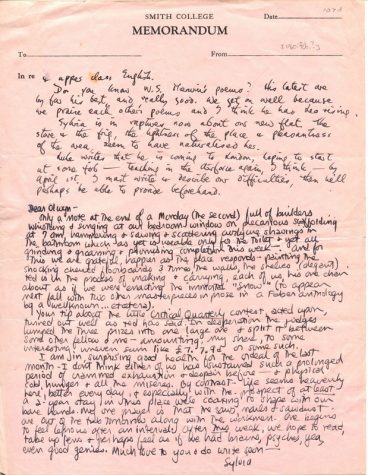 SMITH COLLEGE
Date
MEMORANDUM
To From
In re & upper class English.
Do you know W.S. Merwin's poems? His latest are
by far his best, and really good. We get on well because
we praise each others poems and I think he has no rising.
Sylvia is in raptures now about our new flat. The
stove & the frig, the lightness of the place & pleasantness
of the area, seem to have naturalised her.
Luke writes that he is coming to London, hoping to start
at some job — teaching in the air force again, I think — by
April 1st. I must write & describe our difficulties, then we'll
perhaps be able to provide beforehand.
Dear Olwyn —
Only a note at the end of a Monday (the second) full of builders
whistling & singing at our bedroom window on precarious scaffolding
at 7 am, hammering & sawing & scattering shavings in
the bathroom which has yet to be usable only for the toilet & yet all
grinding & groaning & plumbing completed this week — and for
this we are grateful, happy as the place responds — painting the
shocking floorboards 3 times, the walls, the shelves
ted is in the process of making & carrying, each of us has one chair
about as if we were enacting the immortal "Snow" (to appear
next fall with two other masterpieces in prose in a Faber anthology
by a wellknown etcetera).
Your tip about the little Critical Quarterly contest, acted upon,
turned out well as Ted has said. In desperation the judges
lumped the three prizes into one large one & split it between
some other fellows & me — amounting, my share, to some
interesting, uneven sum like £7, 7, 9d or some such.
I am in surprising good health for the ordeal of the last
month — I don't think either of us has weathered such a prolonged
period of crammed exhaustion & despair before — & physical
cold, hunger & all the miseries. By contrast life seems heavenly
here, better every day, & especially with the prospect of at least
a 2-year stay in this place we're coaxing to shape with our
bare hands. My one prayer is that the saws, nails & sawdust
are out of the two mornings along with the workmen. One begins to
feel famous again, at intervals. After this week, we hope to read,
take up pens & perhaps feel as if we had brains, psyches, yea,
even good genies. Much love to you & do write soon —
Sylvia